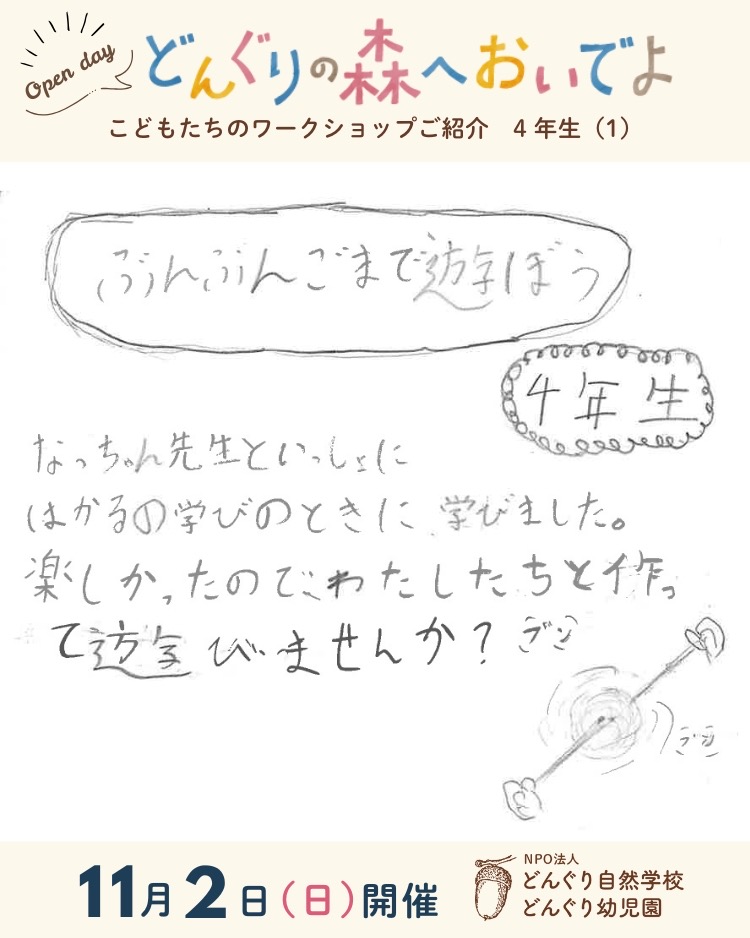 Open day
どんぐりの森へおいでよ
こどもたちのワークショップご紹介　4年生（1）
ぶんぶんごまで遊ぼう
4年生
なっちゃん先生といっしょに
はかるの学びのときに 学びました。
楽しかったので、わたしたちと作っ
て遊びませんか？
11月2日（日）開催
NPO法人
どんぐり自然学校
どんぐり幼児園